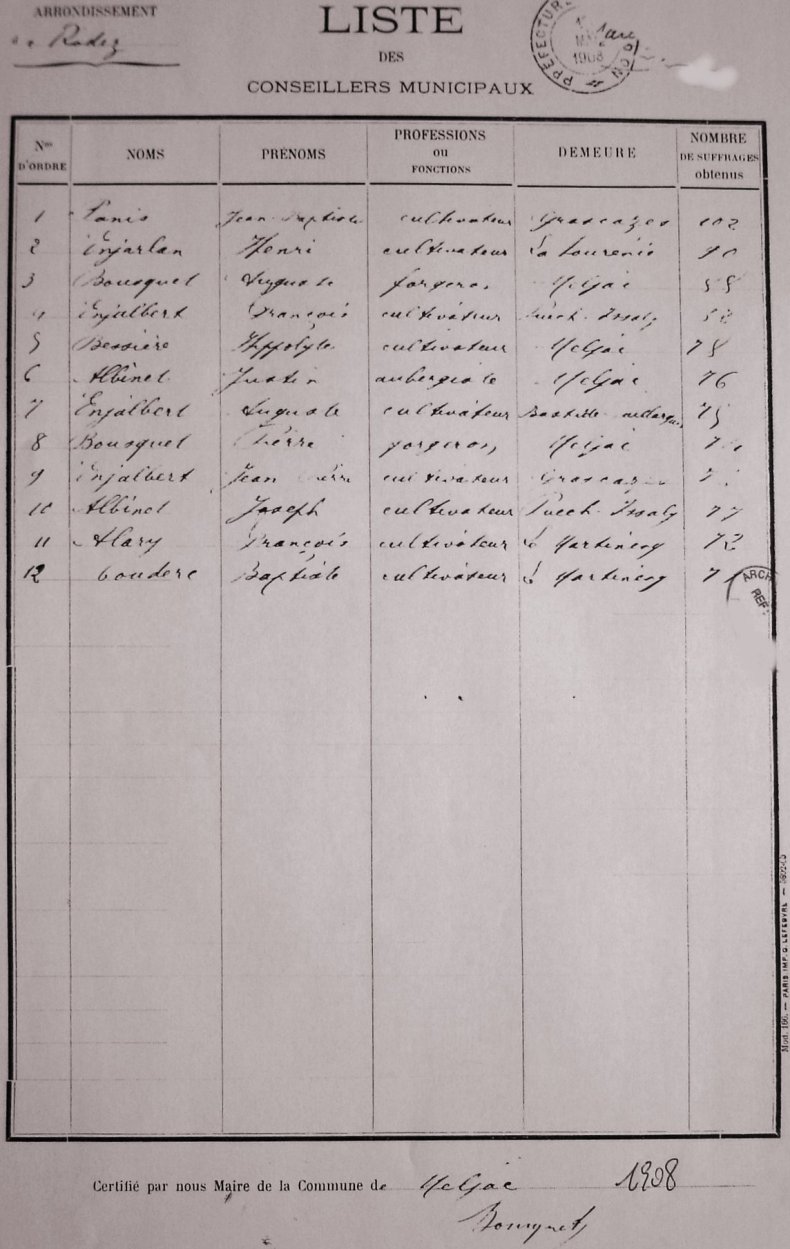 ARRONDISSEMENT
de Rodez
LISTE
DES
CONSEILLERS MUNICIPAUX
PRÉFECTURE
1908
Nos D'ORDRE NOMS PRÉNOMS PROFESSIONS ou FONCTIONS DEMEURE NOMBRE DE SUFFRAGES obtenus
1 Panis Jean Baptiste cultivateur Grascazes 102
2 Enjarlan Henri cultivateur 90
3 Bousquet Auguste forgeron Meljac
4 Enjalbert François cultivateur Puech Issaly
5 Bessière Hippolyte cultivateur Meljac 78
6 Albinet Justin aubergiste Meljac 76
7 Enjalbert Auguste cultivateur Bastide 75
8 Bousquet Pierre forgeron Meljac
9 Enjalbert Jean Pierre cultivateur Grascazes
10 Albinet Joseph cultivateur Puech Issaly 77
11 Alary François cultivateur Martinesq 72
12 Couderc Baptiste cultivateur Martinesq
ARCH
Mod. 166. — PARIS IMP. G. LEFEBVRE
Certifié par nous Maire de la Commune de Meljac 1908
Bousquet